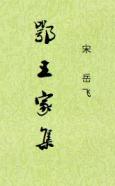 宋 岳飞
鄂王家集